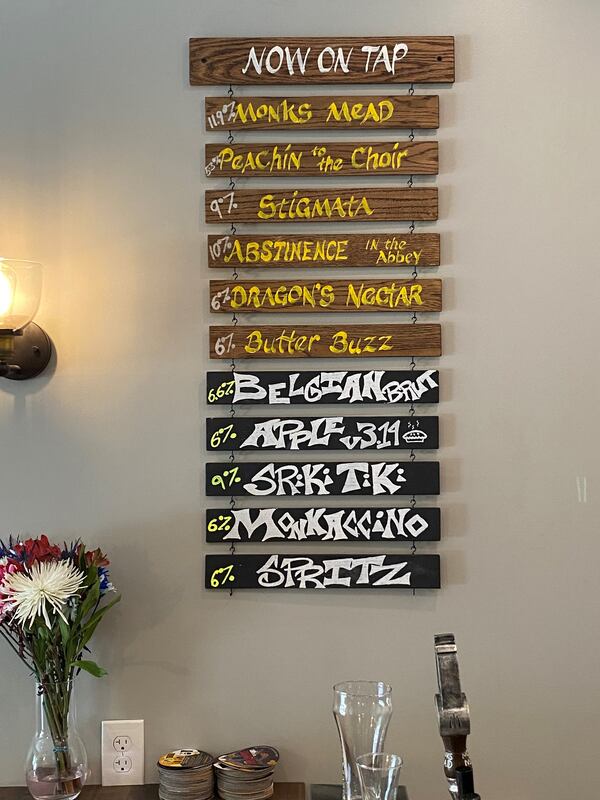 NOW ON TAP
11.9% MONKS MEAD
5.3% PEACHIN to the CHOIR
9% STIGMATA
10% ABSTINENCE IN the ABBEY
6% DRAGON'S NECTAR
6% Butter Buzz
6.6% BELGIAN BRUT
6% APPLE v3.14
9% SRiKi TiKi
6% MONKACCiNO
6% SPRITZ